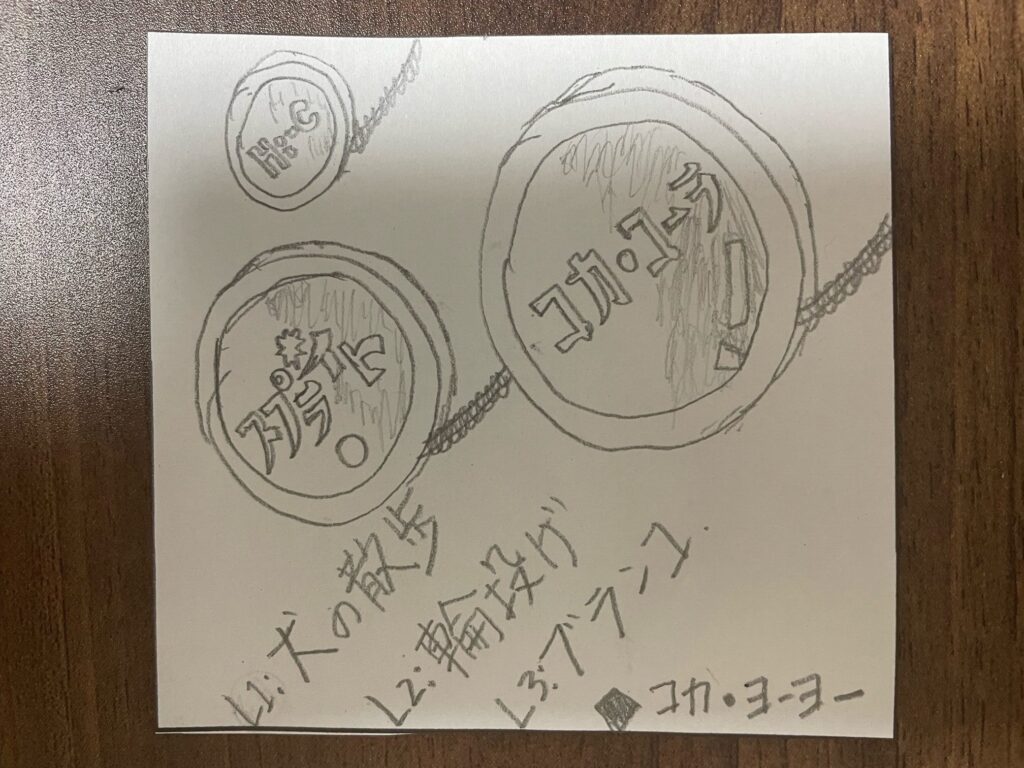 Hi-C
コカ・コーラ
スプライト
L1:犬の散歩
L2:輪投げ
L3:ブランコ
コカ・ヨーヨー